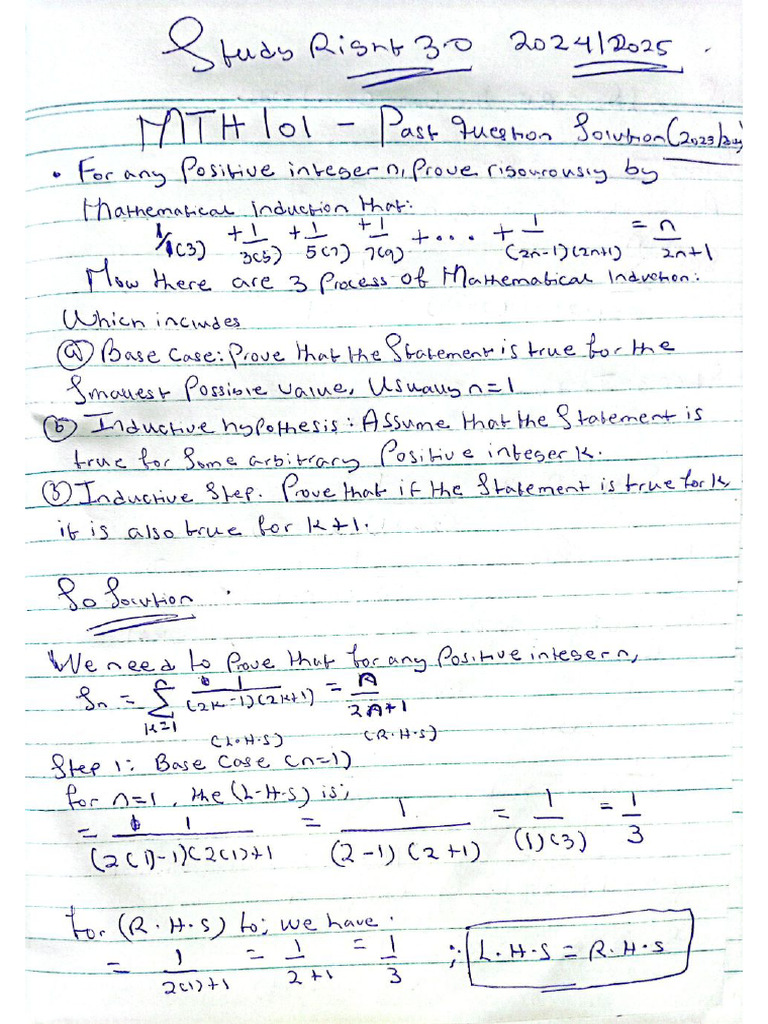 Study Right 3.0 2024/2025.
MTH 101 - Past Question Solution (2023/24)
• For any Positive integer n, Prove rigourously by
Mathematical induction that:
1/1(3) + 1/3(5) + 1/5(7) + 1/7(9) + ... + 1/(2n-1)(2n+1) = n/2n+1
Now there are 3 Process of Mathematical Induction:
Which includes
(a) Base Case: Prove that the Statement is true for the
Smallest Possible value, Usually n=1
(b) Inductive hypothesis: Assume that the Statement is
true for Some arbitrary Positive integer k.
(3) Inductive Step. Prove that if the Statement is true for k
it is also true for k+1.
So Solution.
We need to Prove that for any Positive integer n,
Sn = Σ n k=1 1/(2k-1)(2k+1) = n/2n+1
(L.H.S) (R.H.S)
Step 1: Base Case (n=1)
for n=1, the (L.H.S) is;
= 1/(2(1)-1)(2(1)+1 = 1/(2-1)(2+1) = 1/(1)(3) = 1/3
for (R.H.S) to; we have.
= 1/2(1)+1 = 1/2+1 = 1/3 ∴ L.H.S = R.H.S